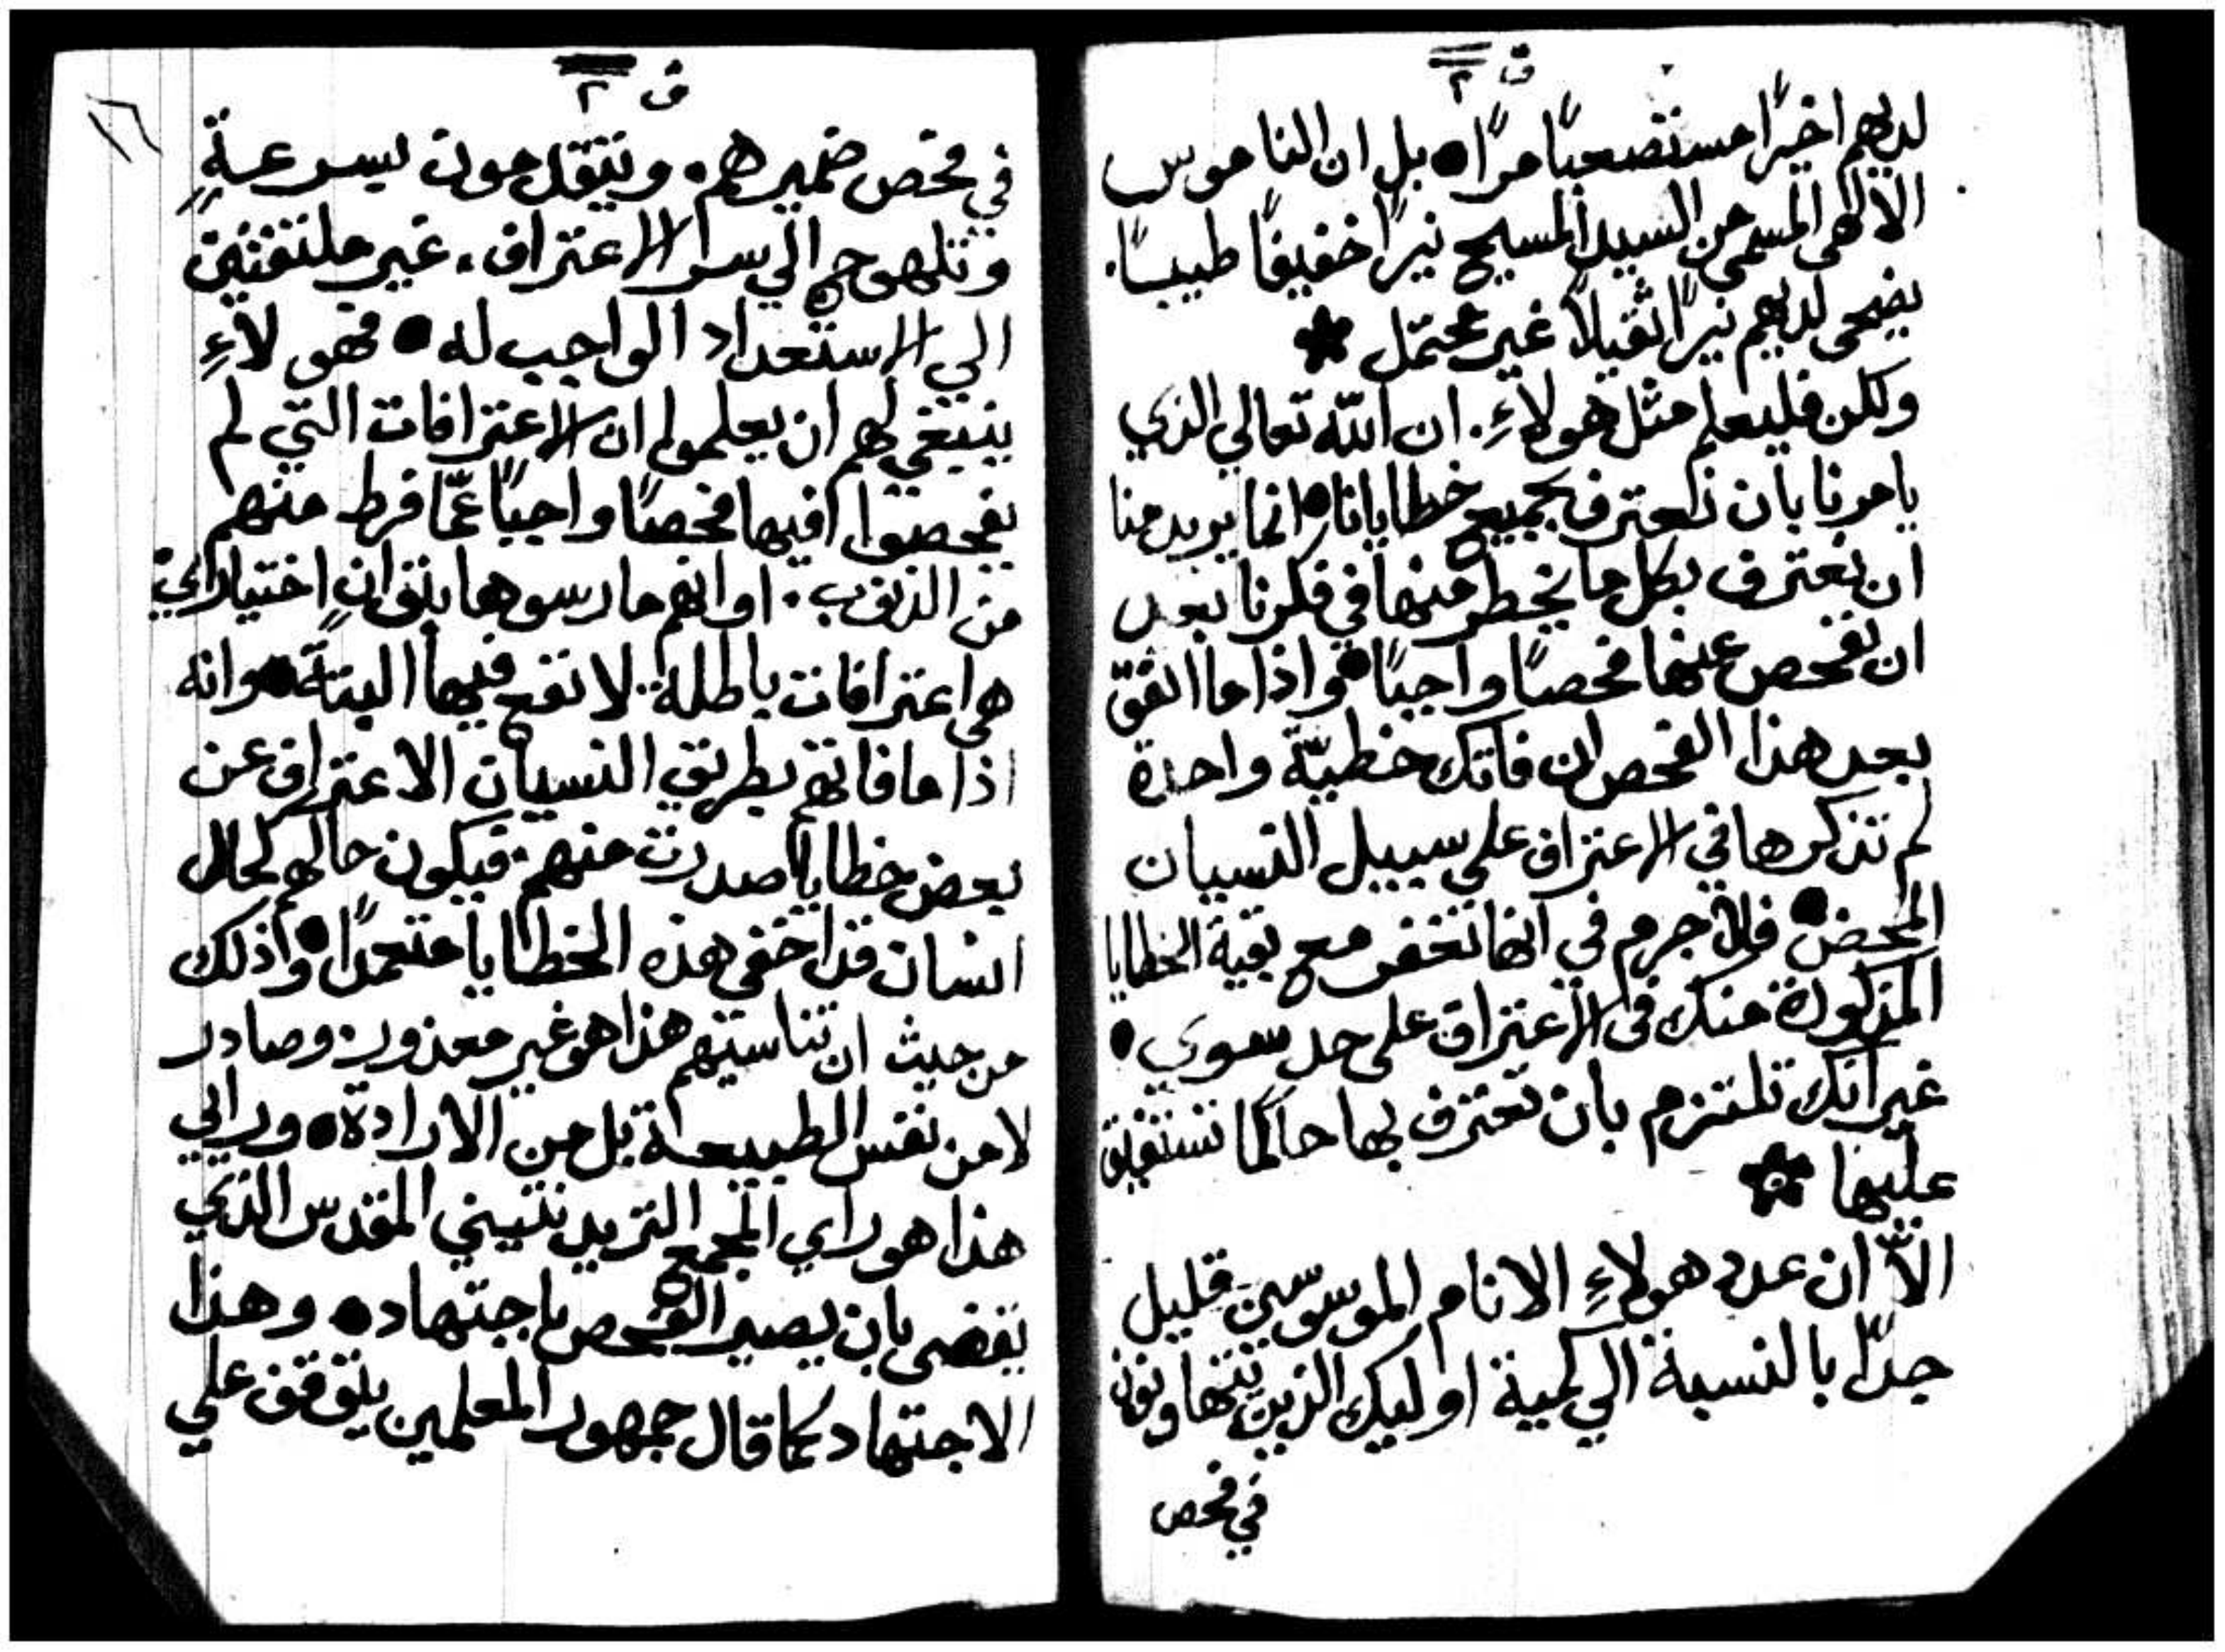 ق ٢
لديهم اخيرًا مستصعبًا مرًا • بل ان الناموس
الالهي المسمي من السيد المسيح نيرًا خفيفًا طيبًا.
يضحي لديهم نيرًا ثقيلاً غير محتمل *
ولكن فليعلم مثل هولاءِ. ان الله تعالي الذي
يامرنا بان نعترف بجميع خطايانا • انما يريد منا
ان نعترف بكل ما يخطر منها في فكرنا بعد
ان نفحص عنها فحصًا واجبًا • واذا ما اتفق
بعد هذا الفحص ان فاتك خطيّة واحدة
لم تذكرها في الاعتراف علي سبيل النسيان
المحض • فلا جرم في انها تغفر مع بقية الخطايا
المذكورة منك في الاعتراف علي حد سوي •
غير انك تلتزم بان تعترف بها حالما تستفيق
عليها *
الاّ ان عدد هولاءِ الانام الموسوسين قليل
جدًا بالنسبة الي كمية اوليك الذين يتهاونون
في فحص
ق ٢
١٦
في فحص ضميرهم. ويتقدمون بسرعةٍ
وتلهوج الي سر الاعتراف. غير ملتفتين
الي الاستعداد الواجب له • فهولاءِ
ينبغي لهم ان يعلموا ان الاعترافات التي لم
يفحصوا فيها فحصًا واجبًا عمّا فرط منهم
من الذنوب. او انهم مارسوها بتوانٍ اختياري
هي اعترافات باطلة. لا نفع فيها البتة • وانه
اذا ما فاتهم بطريق النسيان الاعتراف عن
بعض خطايا صدرت منهم. فيكون حالهم كحال
انسان قد اخفي هذه الخطايا متعمدًا • وذلك
من حيث ان تناسيهم هذا هو غير معذور. وصادر
لا من نفس الطبيعة بل من الارادة • ورايي
هذا هو راي المجمع التريدنتيني المقدس الذي
يقضي بان يصير الفحص باجتهاد • وهذا
الاجتهاد كما قال جمهور المعلمين يتوقف علي